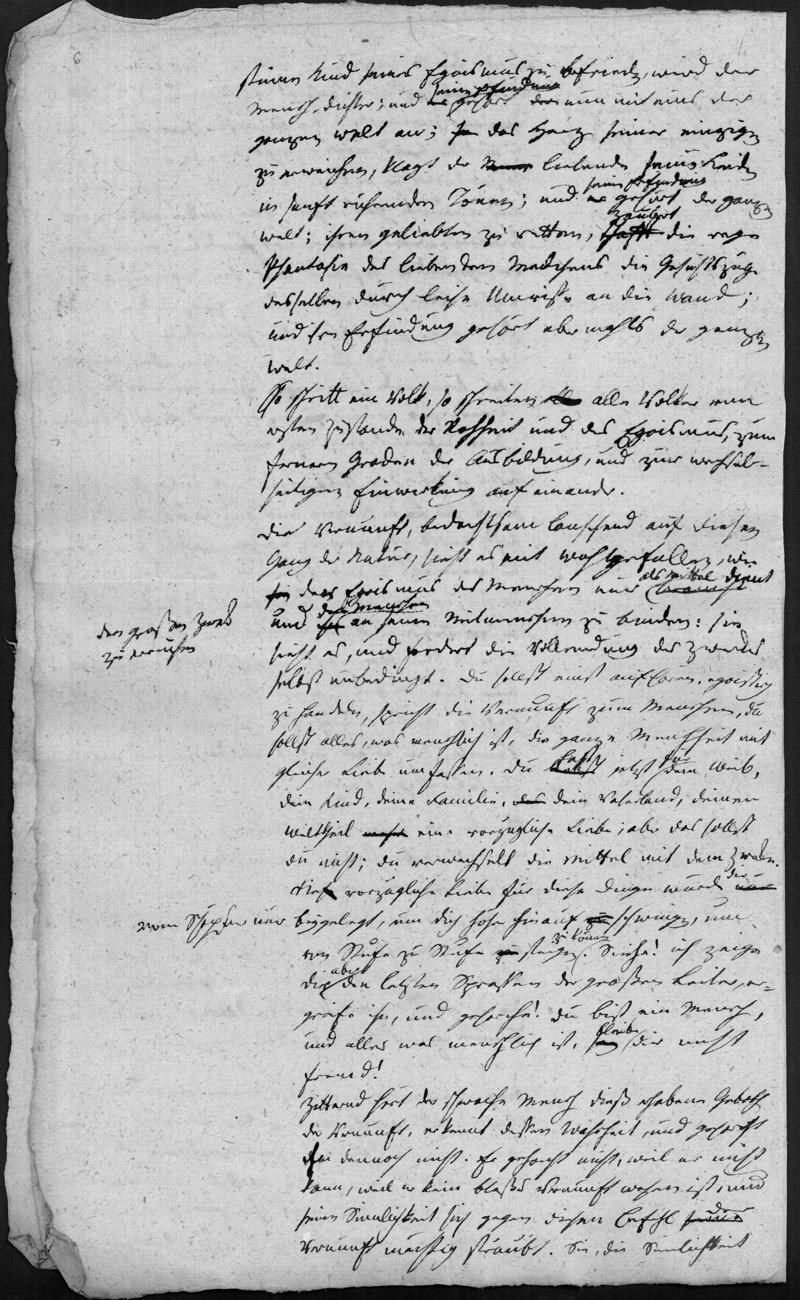 6
stummen Kind seines Egoismus zu befriedn, wird der
Mensch Dichter; und er seine Empfindung gehört der nun mit uns der
ganzen Welt an; Um das Herz seiner einzigen
zu erweichen, klagt der liebende seine Leiden
in sanft rührenden Tönen; und er seine Erfindung gehört der ganzen
Welt; ihren geliebten zu retten, schafft zaubert die rege
Phantasie des liebenden Mädchens die Gesichtszüge
desselben durch leise Umrisse an die Wand;
und ihre Erfindung gehört abermahls der ganzen
Welt.
So schritt ein Volk, so schreiten alle Völker vom
ersten Zustande der Rohheit und des Egoismus, zum
fernern Graden der Ausbildung, und zur wechsel-
seitigen Einwirkung auf einander.
Die Vernunft, bedachtsam lauschend auf diesen
Gang der Natur, sieht es mit Wohlgefallen, wie
der Egoismus des Menschen nur als Mittel dient
den großen Zwek
zu erreichen
und den Menschen an seine Mitmenschen zu binden: sie
sieht es, und fordert die Vollendung des Zwecks
selbst unbedingt. Du sollst einst aufhören, egoistisch
zu handeln, spricht die Vernunft zum Menschen, du
sollst alles, was menschlich ist, die ganze Menschheit mit
gleicher Liebe umfassen. Du hast jetzt für dein Weib,
dein Kind, deine Familie, dein Vaterland, deinen
Welttheil eine vorzügliche Liebe; aber das sollst
du nicht; du verwechselst die Mittel mit dem Zweke.
Diese vorzügliche Liebe für diese Dinge wurde dir
vom Schöpfer nur beygelegt, um dich höher hinauf schwingen, um
von Stufe zu Stufe steigen zu können. Siehe! ich zeige
dir aber den letzten Sprossen der großen Leiter, er-
greife ihn, und gehorche! du bist ein Mensch,
und alles was menschlich ist, bleibe dir nicht
fremd!
Zitternd hört der schwache Mensch dieß erhabene Geboth
der Vernunft, erkennt dessen Wahrheit, und gehorcht
ihr dennoch nicht. Er gehorcht nicht, weil er nicht
kann, weil er kein bloßes Vernunft wesen ist, und
seine Sinnlichkeit sich gegen diesen Befehl der
Vernunft mächtig sträubt. Sie, die Sinnlichkeit